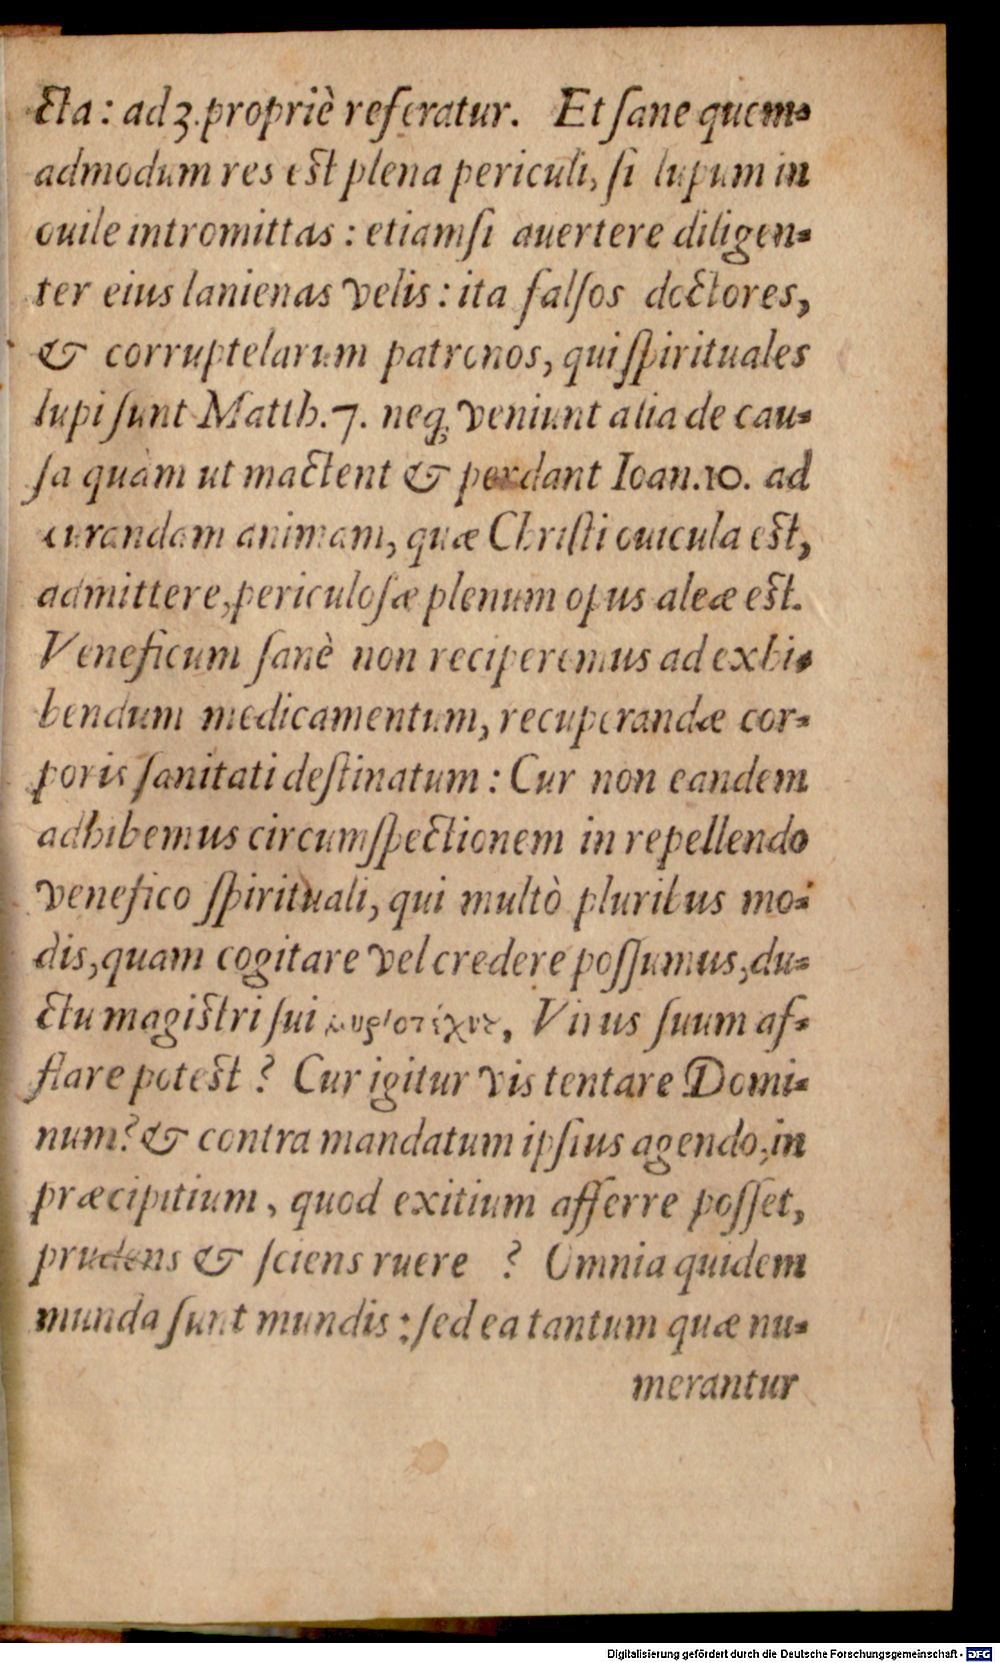 cta: ad 3. propriè referatur. Et sane quem-
admodum res est plena periculi, si lupum in
ouile intromittas: etiamsi auertere diligen-
ter eius lanienas velis: ita falsos doctores,
& corruptelarum patronos, qui spirituales
lupi sunt Matth. 7. neq; veniunt alia de cau-
sa quàm ut mactent & perdant Ioan. 10. ad
curandam animam, quæ Christi ouicula est,
admittere, periculosæ plenum opus aleæ est.
Veneficum sanè non reciperemus ad exhi-
bendum medicamentum, recuperandæ cor-
poris sanitati destinatum: Cur non eandem
adhibemus circumspectionem in repellendo
venefico spirituali, qui multò pluribus mo-
dis, quam cogitare vel credere possumus, du-
ctu magistri sui μυριοτέχνε, Virus suum af-
flare potest? Cur igitur vis tentare Domi-
num? & contra mandatum ipsius agendo, in
præcipitium, quod exitium afferre posset,
prudens & sciens ruere? Omnia quidem
munda sunt mundis: sed ea tantum quæ nu-
merantur
Digitalisierung gefördert durch die Deutsche Forschungsgemeinschaft - DFG